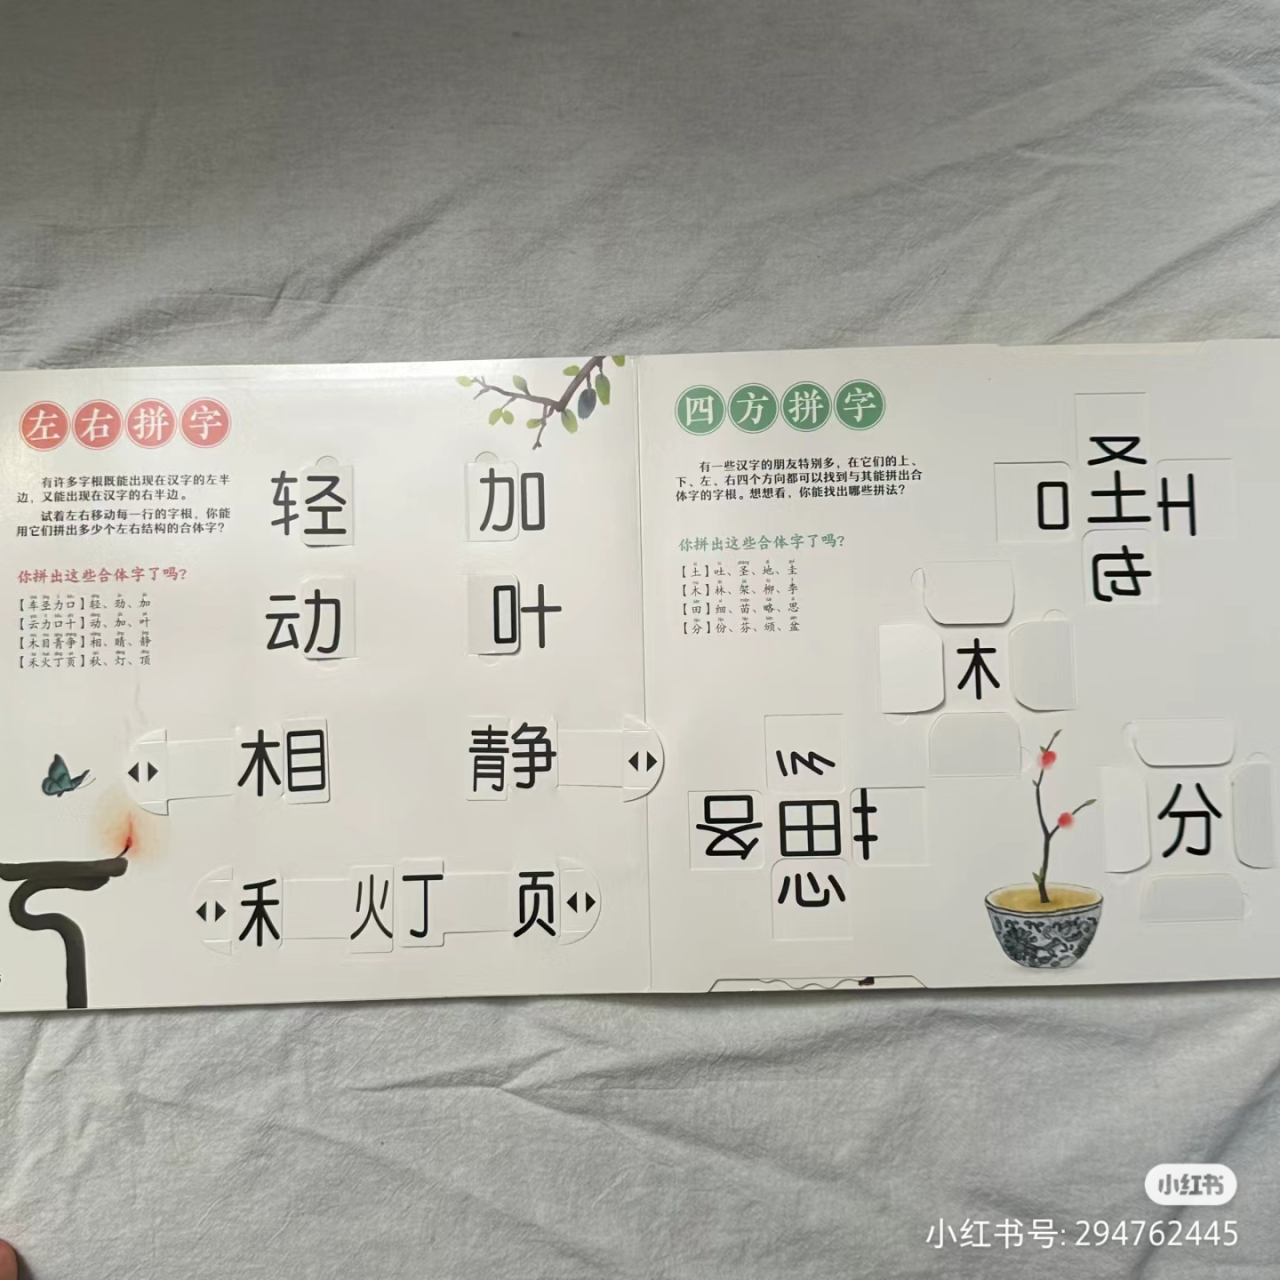 左右拼字
有许多字根既能出现在汉字的左半
边，又能出现在汉字的右半边。
试着左右移动每一行的字根，你能
用它们拼出多少个左右结构的合体字？
你拼出这些合体字了吗？
【车圣力口】轻、劲、加
【云力口十】动、加、叶
【木目青争】相、睛、静
【禾火丁页】秋、灯、顶
轻 加
动 叶
相 静
禾 火丁 页
四方拼字
有一些汉字的朋友特别多，在它们的上、
下、左、右四个方向都可以找到与其能拼出合
体字的字根。想想看，你能找出哪些拼法？
你拼出这些合体字了吗？
【土】吐、圣、地、圭
【木】林、架、柳、李
【田】细、苗、略、思
【分】份、芬、颁、盆
又
口 土
木
田
心
分
小红书
小红书号: 294762445